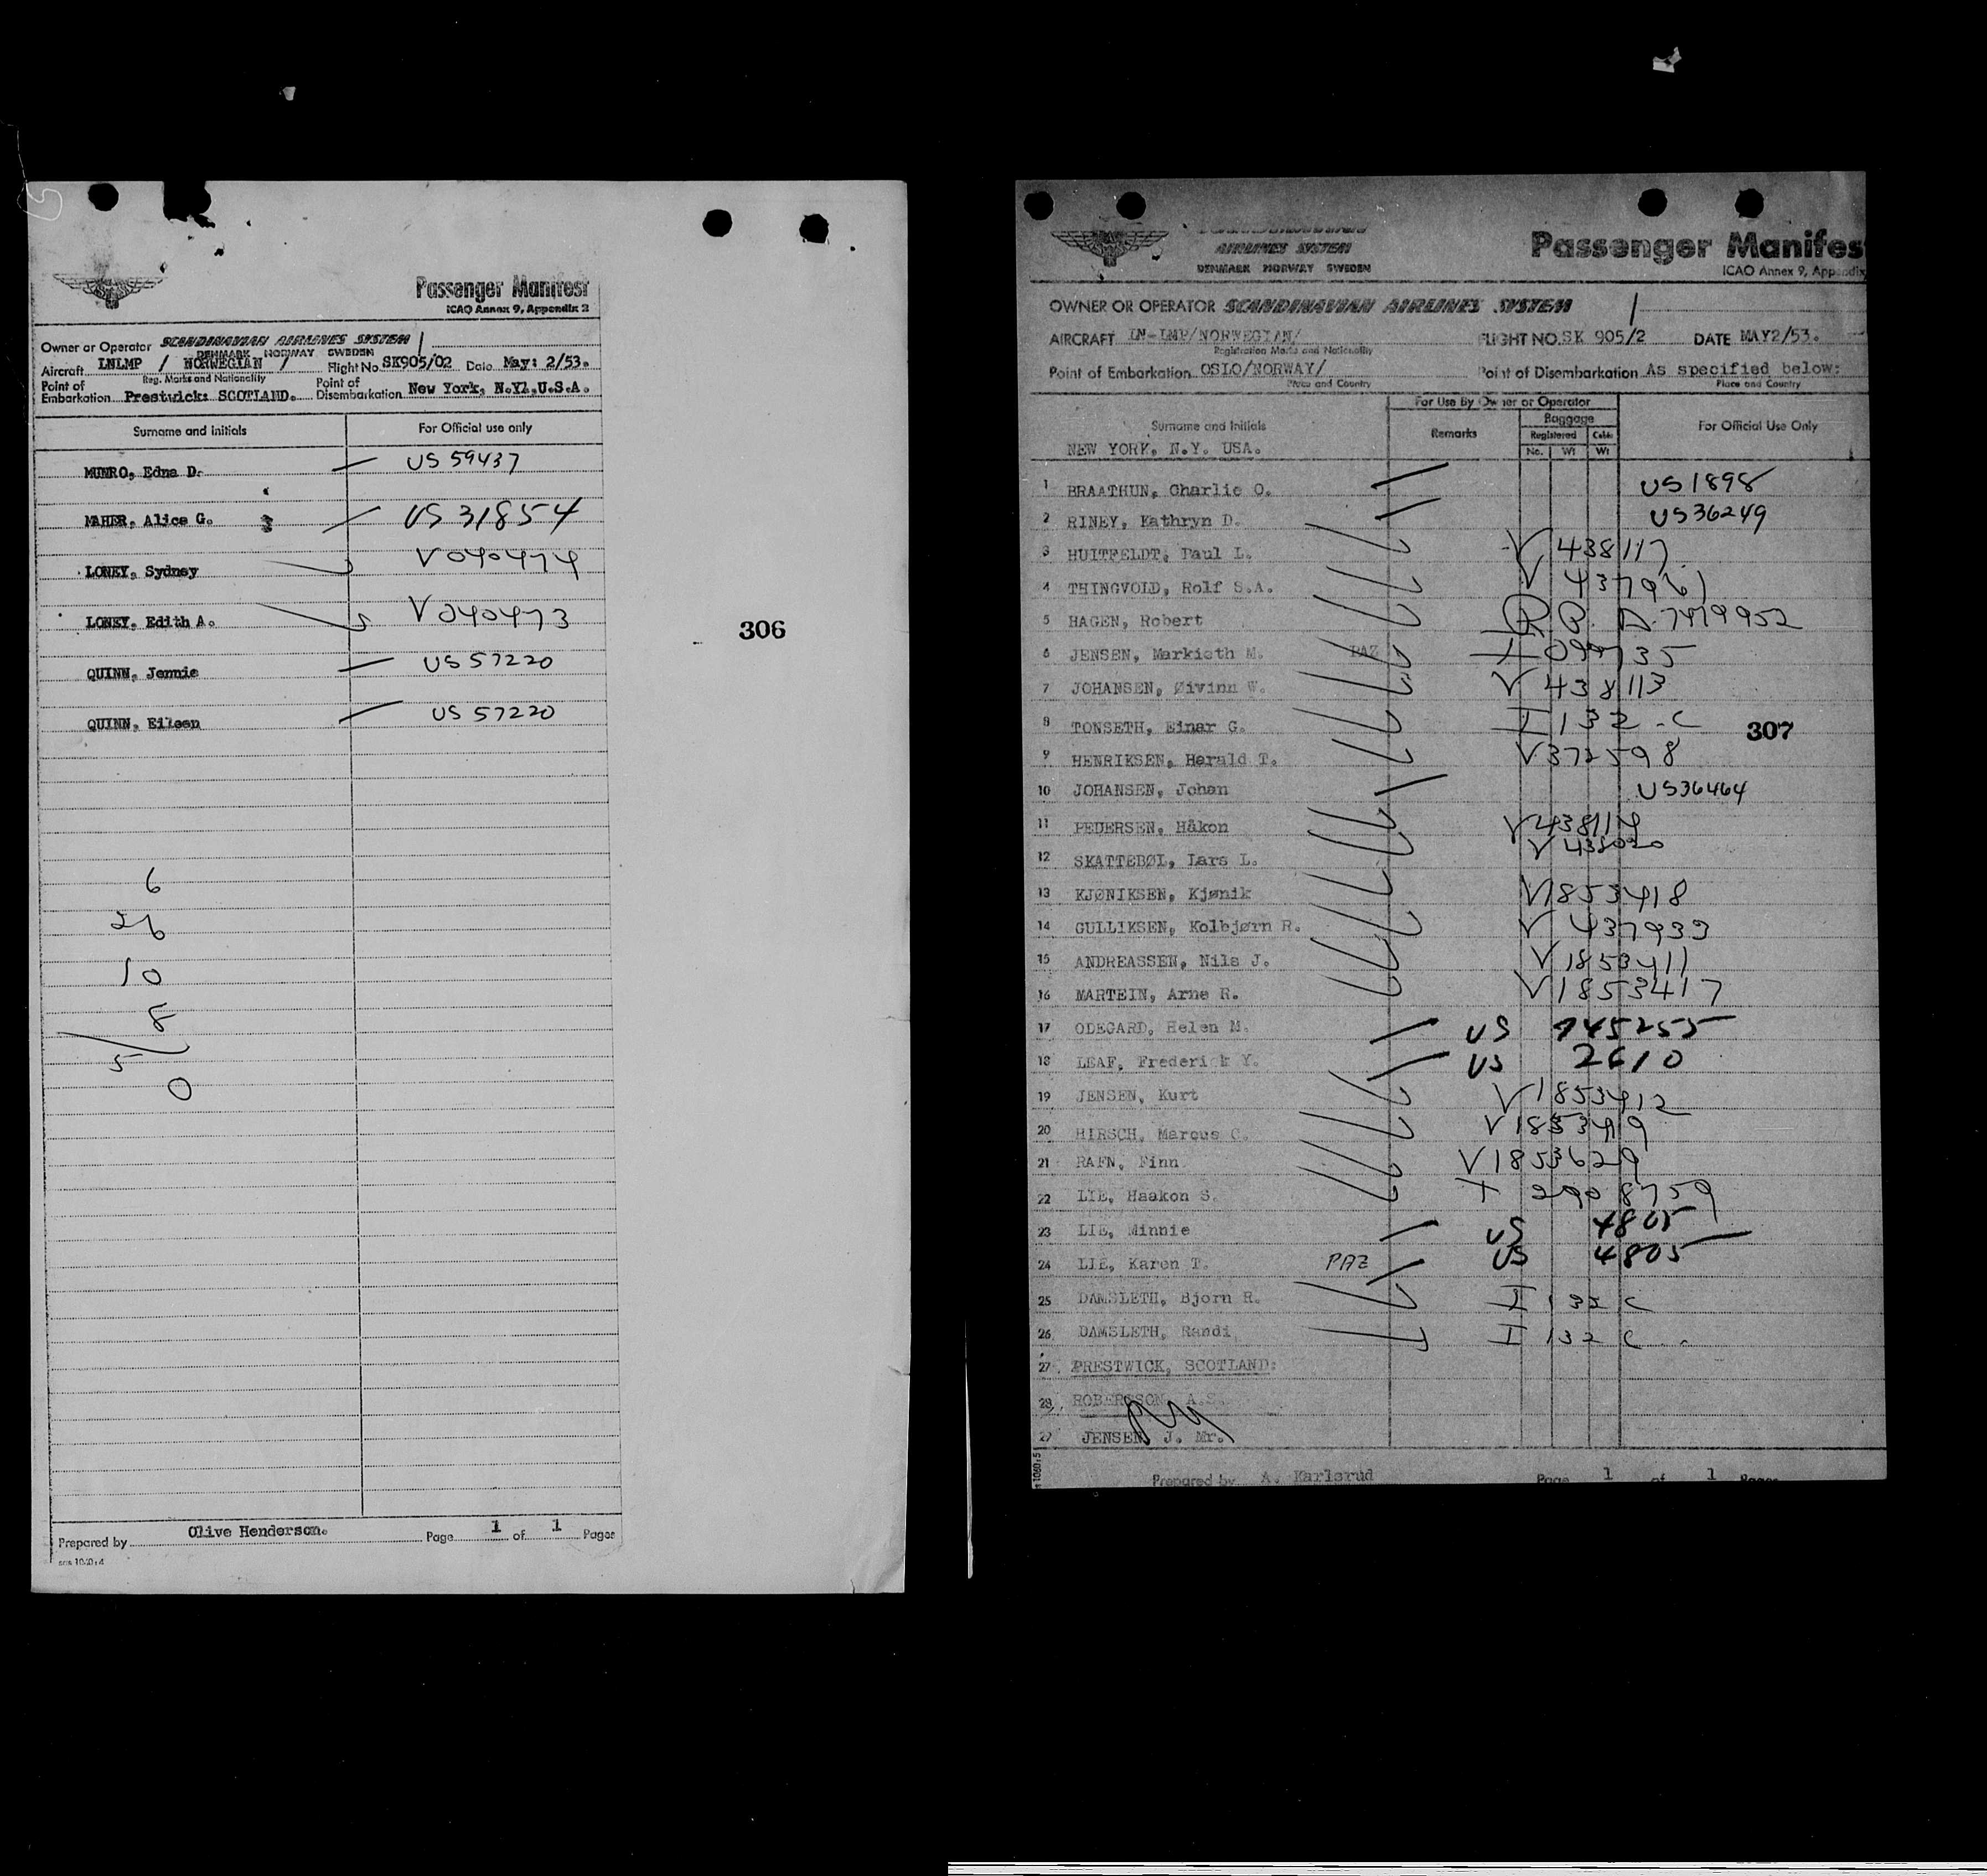 Passenger Manifest
ICAO Annex 9, Appendix 2
Owner or Operator SCANDINAVIAN AIRLINES SYSTEM
DENMARK NORWAY SWEDEN
Aircraft LNLMP / NORWEGIAN / Flight No SK905/02 Date May: 2/53.
Reg. Marks and Nationality
Point of Embarkation Prestwick: SCOTLAND. Point of Disembarkation New York, N.Yl,U.S.A.
Surname and Initials For Official use only
MUNRO, Edna D. US 59437
MAHER, Alice G. US 31854
LONEY, Sydney V040474
LONEY. Edith A. V040473
QUINN, Jennie US 57220
QUINN, Eileen US 57220
306
6
26
10
8
5
0
Prepared by Olive Henderson. Page 1 of 1 Pages
AIRLINES SYSTEM
DENMARK NORWAY SWEDEN
Passenger Manifes
ICAO Annex 9, Appendix
OWNER OR OPERATOR SCANDINAVIAN AIRLINES SYSTEM
AIRCRAFT LN-LMP/NORWEGIAN/ FLIGHT NO. SK 905/2 DATE MAY2/53.
Registration Marks and Nationality
Point of Embarkation OSLO/NORWAY/ Point of Disembarkation As specified below:
Place and Country Place and Country
For Use By Owner or Operator
Surname and Initials Remarks Baggage For Official Use Only
Registered Cabin
No. Wt Wt
NEW YORK, N.Y. USA.
1 BRAATHUN, Charlie O. US1898
2 RINEY, Kathryn D. US36249
3 HUITFELDT, Paul L. V 438117
4 THINGVOLD, Rolf S.A. V 437961
5 HAGEN, Robert A.7419952
6 JENSEN, Markieth M. PAZ
7 JOHANSEN, Øivinn W. V 438113
8 TONSETH, Einar G. I 132-C
307
9 HENRIKSEN, Harald T. V372598
10 JOHANSEN, Johan US36464
11 PEDERSEN, Håkon V438114
12 SKATTEBØL, Lars L.
13 KJØNIKSEN, Kjønik V1853418
14 GULLIKSEN, Kolbjørn R. V 437933
15 ANDREASSEN, Nils J. V 1853411
16 MARTEIN, Arne R. V1853417
17 ODEGARD, Helen M. US 745255
18 LEAF, Frederick Y. US 2610
19 JENSEN, Kurt V1853412
20 HIRSCH, Marcus C. V1853419
21 RAFN, Finn V1853629
22 LIE, Haakon S.
23 LIE, Minnie US 4805
24 LIE, Karen T. PAZ US 4805
25 DAMSLETH, Bjorn R. I 132 C
26 DAMSLETH, Randi I 132 C
27 PRESTWICK, SCOTLAND:
28 ROBERTSON, A.S.
27 JENSEN, J. Mr.
Prepared by A. Karlsrud Page 1 of 1 Pages